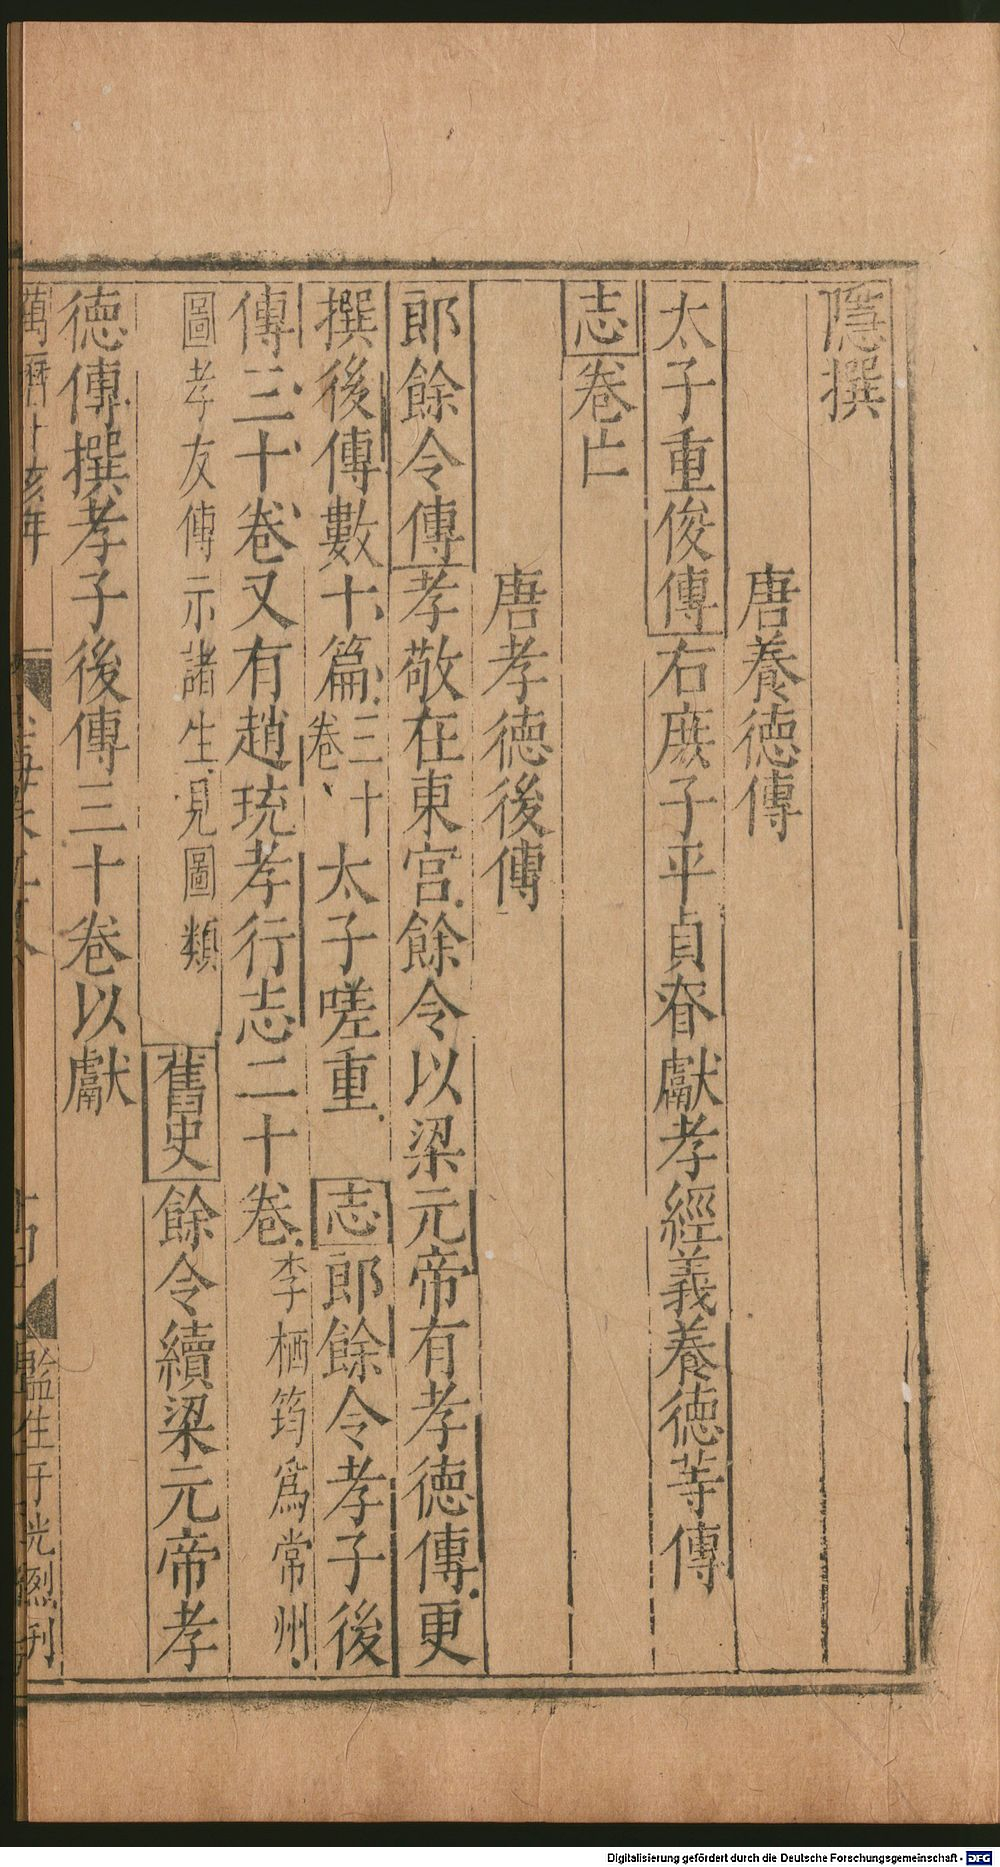 隱撰
唐養德傳
太子重俊傳右庶子平貞眘獻孝經義養德等傳
志卷亡
唐孝德後傳
郎餘令傳孝敬在東宮餘令以梁元帝有孝德傳更
撰後傳數十篇三十卷太子嗟重志郎餘令孝子後
傳三十卷又有趙珫孝行志二十卷李栖筠為常州
圖孝友傳示諸生見圖類舊史餘令續梁元帝孝
德傳撰孝子後傳三十卷以獻
監生于光烈刊
Digitalisierung gefördert durch die Deutsche Forschungsgemeinschaft - DFG